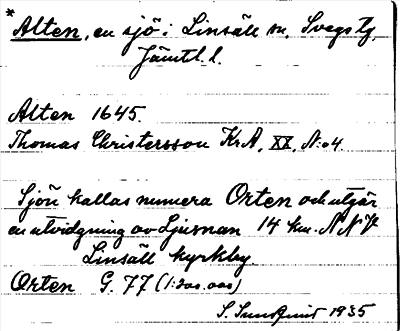 *Alten, en sjö i Linsäll sn, Svegs tg,
Jämtl. l.
Alten 1645.
Thomas Christersson Kr.A. XX, N:o 4.
Sjön kallas numera Orten och utgör
en utvidgning av Ljusnan 14 km. NNV
Linsäll kyrkby.
Orten G. 77 (1:200.000)
S. Sundquist 1935